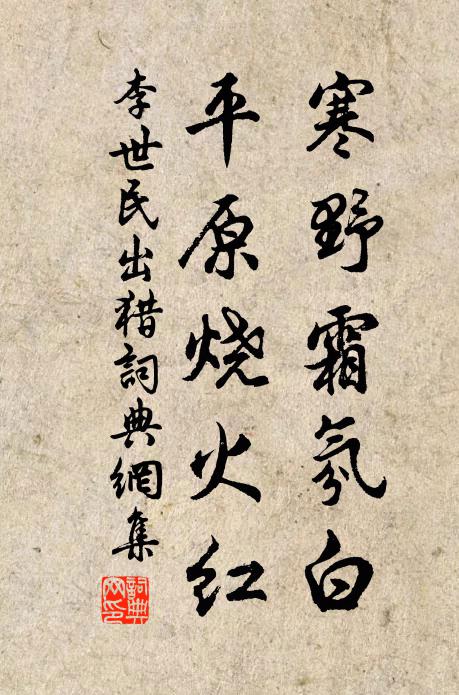 寒野霜氛白
平原烧火红
李世民出猎詞典網集
詞典
网印